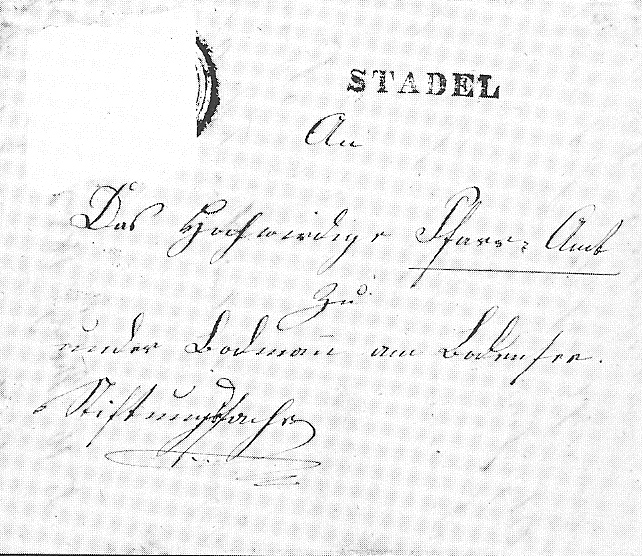 STADEL
An
Das Hochwirdige Pfarr=Amt
zu
under Bodman̄ am Bodensee.
Stiftungssache